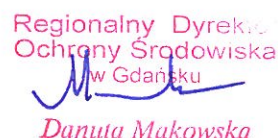 Regionalny Dyrek
Ochrony Środowiska
w Gdańsku
Danuta Makowska